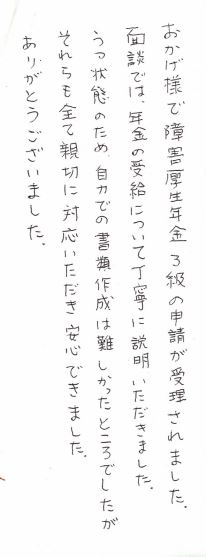 おかげ様で障害厚生年金3級の申請が受理されました。
面談では、年金の受給について丁寧に説明いただきました。
うつ状態のため、自力での書類作成は難しかったところでしたが
それらも全て親切に対応いただき安心できました。
ありがとうございました。